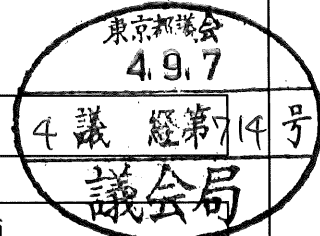 東京都議会
4.9.7
4議 経第714号
議会局